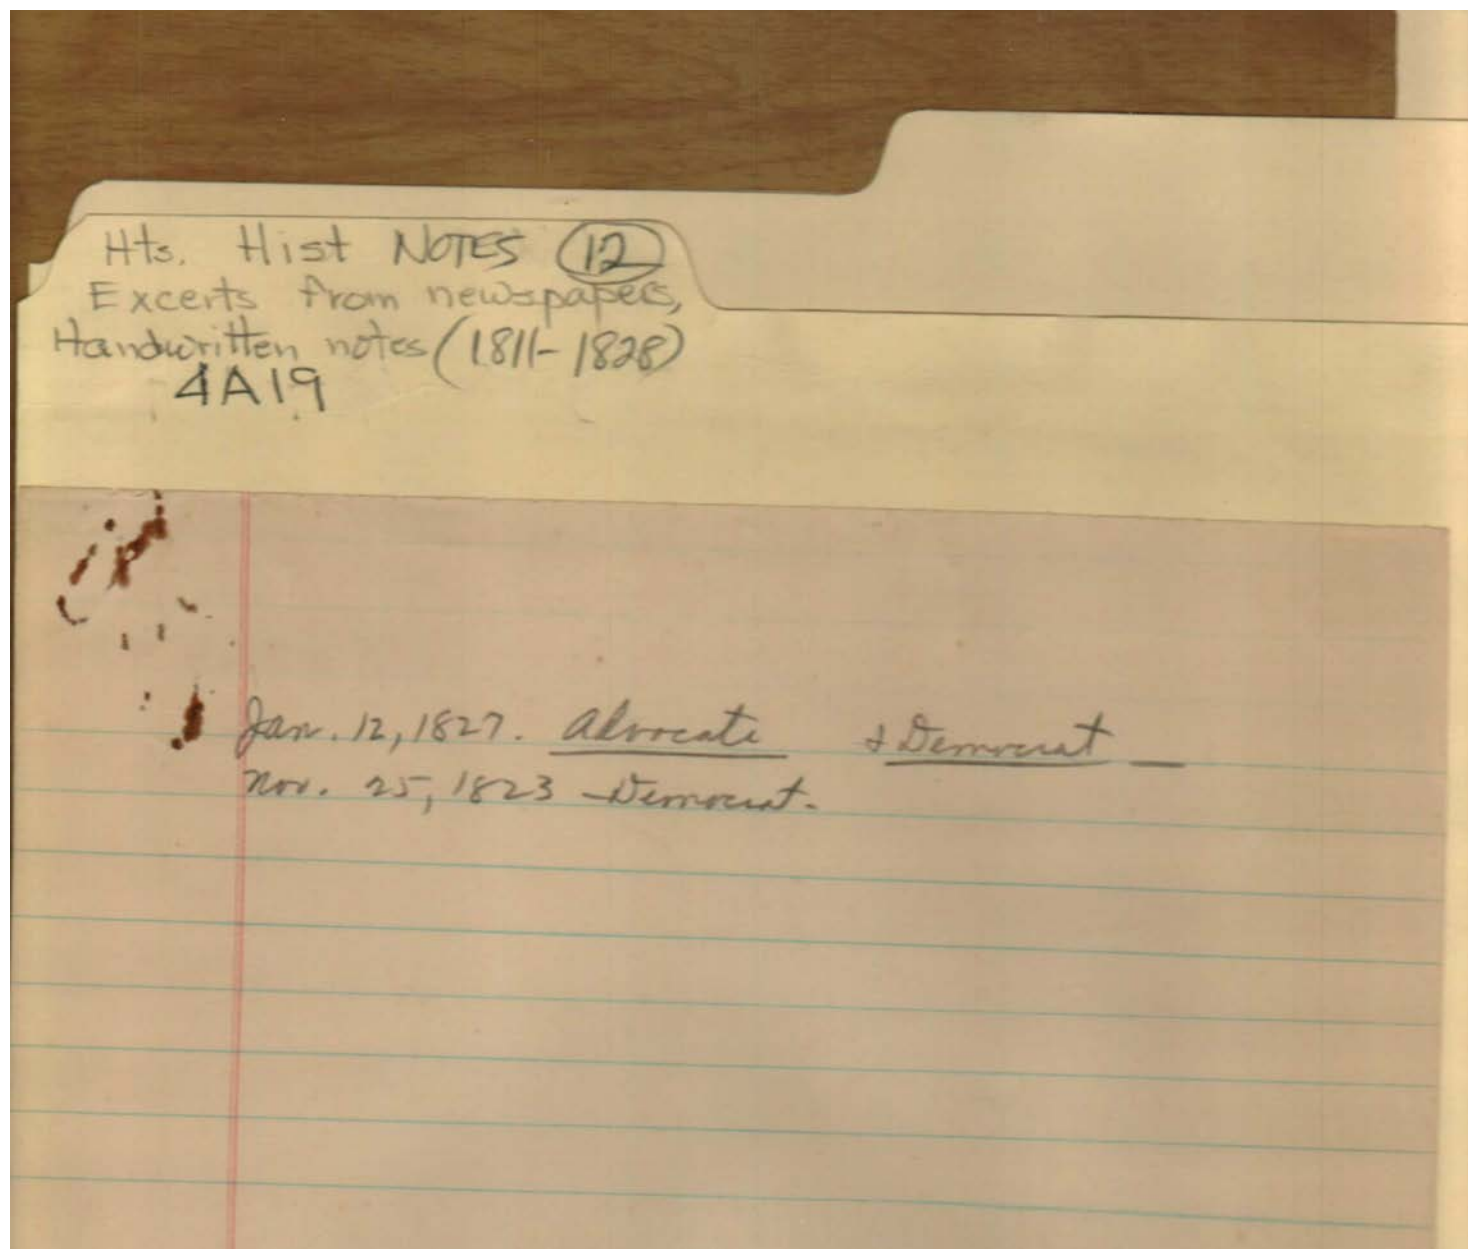 Hts. Hist NOTES 12
Excerts from newspapers,
Handwritten notes (1811-1828)
4A19
Jan. 12, 1827. Advocate & Democrat —
Nov. 25, 1823 - Democrat.